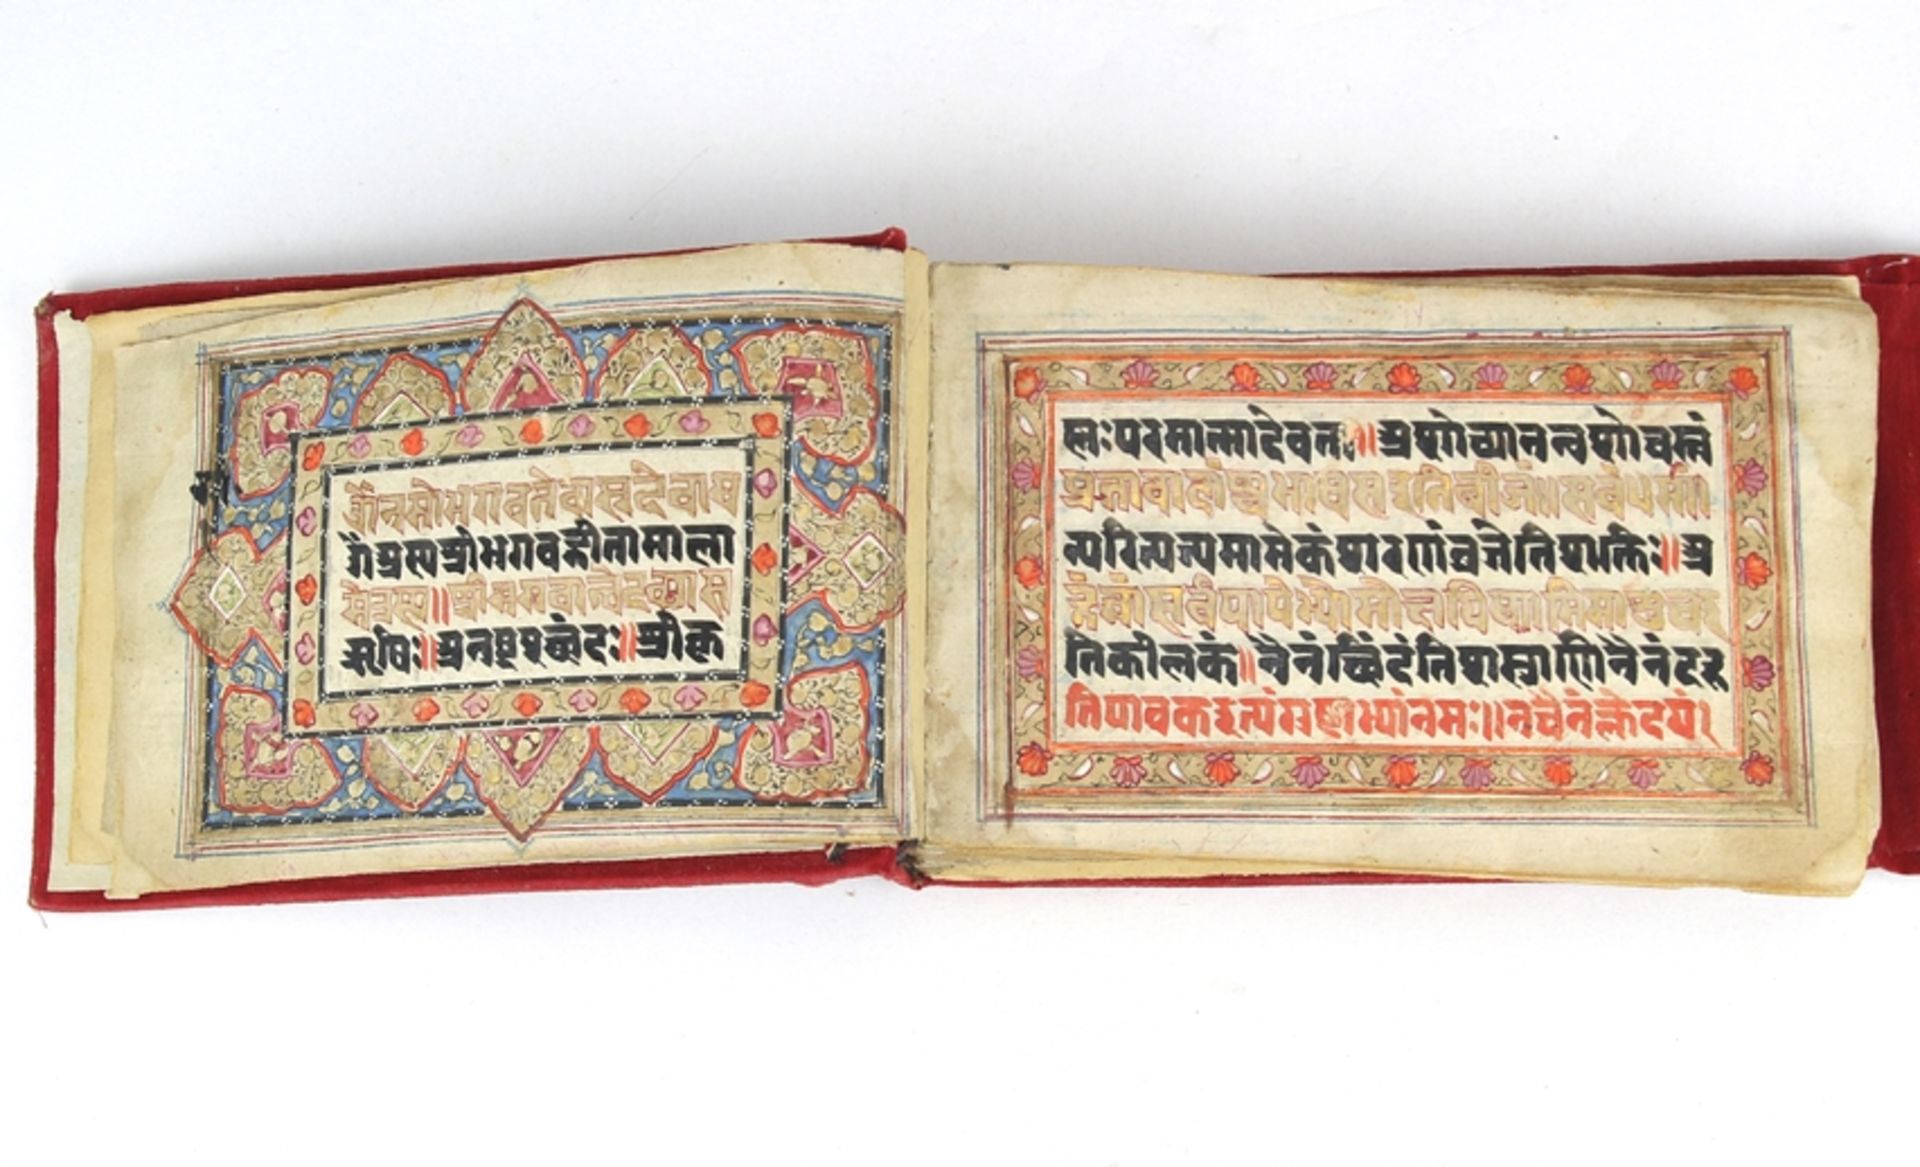 ॐनमोभगवतेवासुदेवाय
ॐअस्यश्रीभगवद्गीतामाला
मंत्रस्य॥श्रीभगवान्वेदव्यास
ऋषिः॥अनुष्टुप्छंदः॥श्रीकृ
स्मःपरमात्मादेवता॥अशोच्यानन्वशोचस्त्वं
प्रज्ञावादांश्चभाषसइतिबीजं॥सर्वधर्मा
न्परित्यज्यमामेकंशरणंव्रजेतिशक्तिः॥अ
हंत्वांसर्वपापेभ्योमोक्षयिष्यामिमाशुचइ
तिकीलकं॥नैनंछिंदंतिशस्त्राणिनैनंदह
तिपावकइत्यंगुष्ठाभ्यांनमः॥नचैनंक्लेदयं